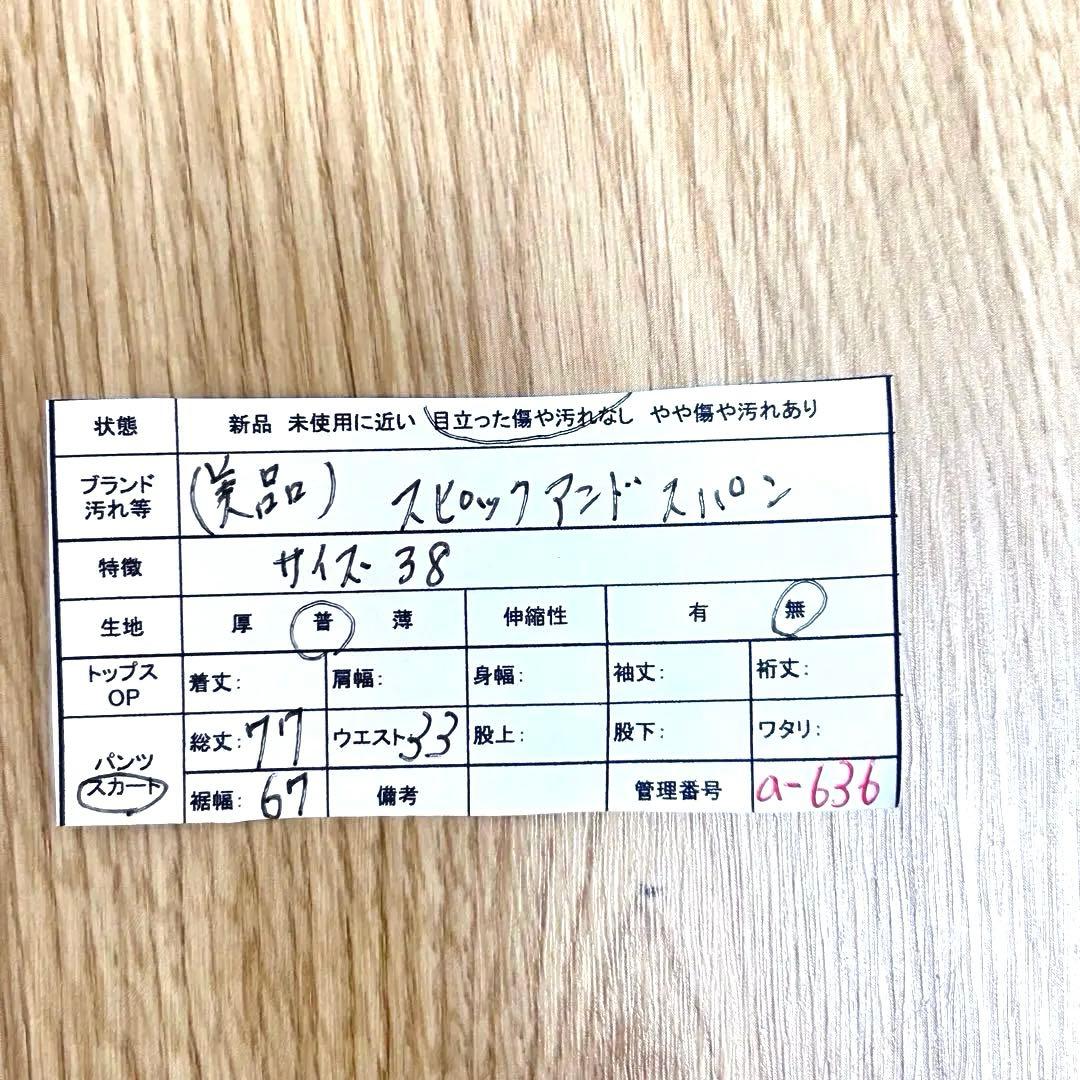 状態 新品 未使用に近い 目立った傷や汚れなし やや傷や汚れあり
ブランド 汚れ等 (美品) スピックアンドスパン
特徴 サイズ 38
生地 厚 普 薄 伸縮性 有 無
トップス OP 着丈: 肩幅: 身幅: 袖丈: 裄丈:
パンツ スカート 総丈:77 ウエスト33 股上: 股下: ワタリ:
裾幅: 67 備考 管理番号 a-636